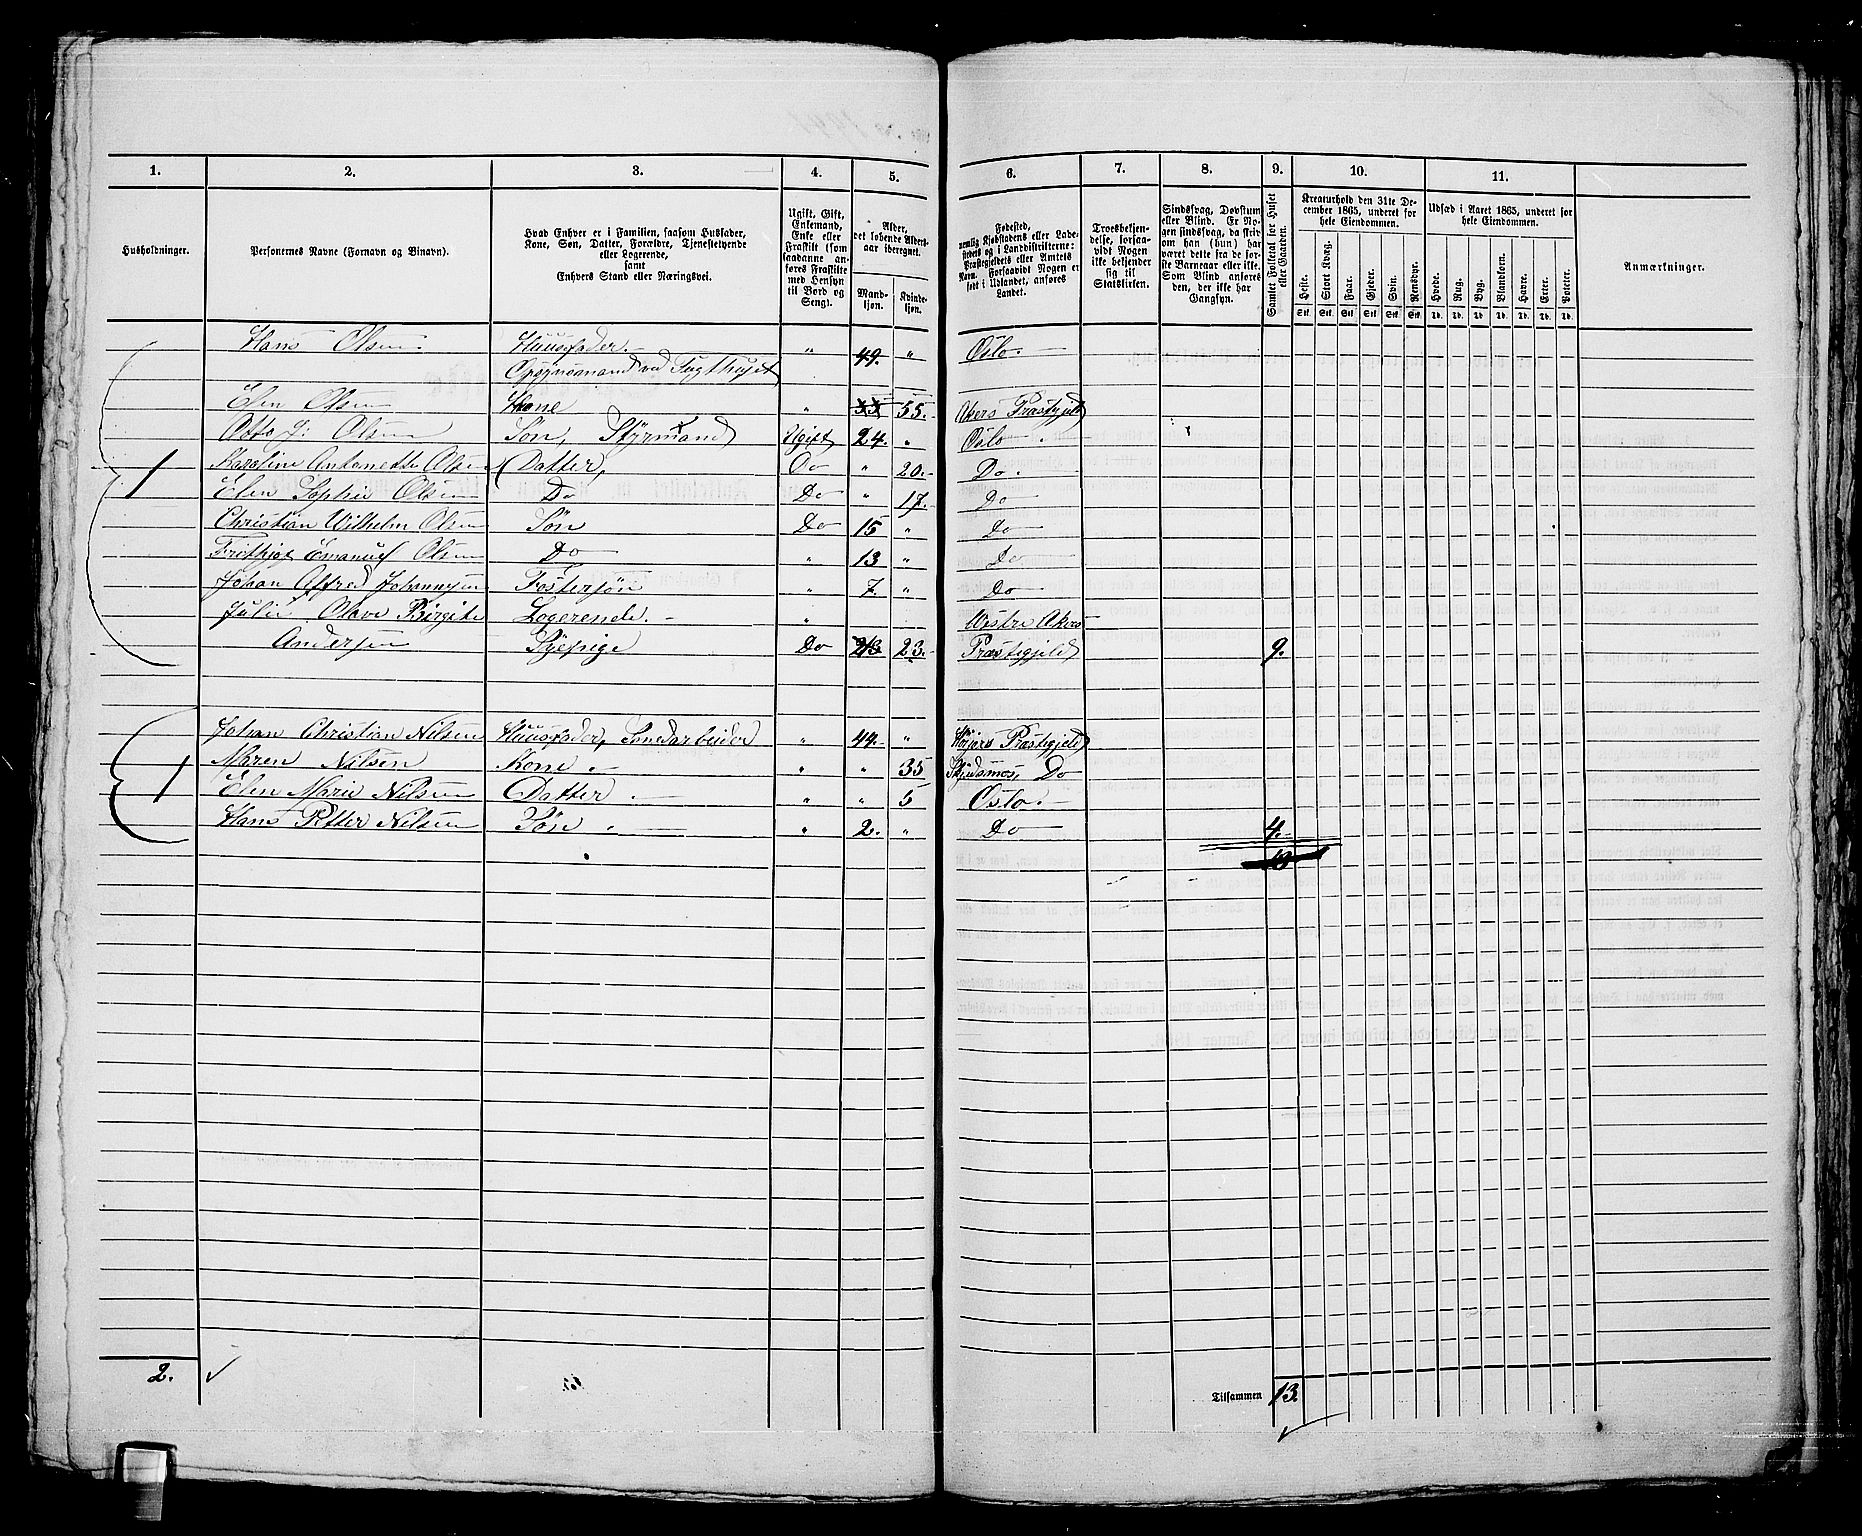 1. 2. 3. 4. 5. 6. 7. 8. 9. 10. 11.
Husholdninger.
Personernes Navne (Fornavn og Binavn).
Hvad Enhver er i Familien, saasom Husfader,
Kone, Søn, Datter, Forældre, Tjenestetyende
eller Logerende,
samt
Enhvers Stand eller Næringsvei.
Ugift, Gift,
Enkemand,
Enke eller
Fraskilt (som
saadanne an-
føres Fraskilte
med Hensyn
til Bord og
Seng).
Alder,
det løbende Alders-
aar iberegnet.
Mand-
kjøn.
Kvinde-
kjøn.
Fødested,
nemlig Kjøbstadens eller Lade-
stedets og i Landdistrikterne:
Præstegjeldets eller Amtets
Navn. Forsaavidt Nogen er
født i Udlandet, anføres
Landet.
Troesbekjen-
delse, forsaa-
vidt Nogen
ikke bekjender
sig til
Statskirken.
Sindssvag, Døvstum
eller Blind. Er No-
gen sindssvag, da skriv
om han (hun) har
været dette fra de før-
ste Barneaar eller ikke.
Som Blind anføres
den, der ikke har
Gangsyn.
Samlet Folketal for Huset
eller Gaarden.
Kreaturhold den 31te De-
cember 1865, underet for
hele Eiendommen.
Heste. Stort Kvæg. Faar. Gjeder. Svin. Rensdyr.
Stk. Stk. Stk. Stk. Stk. Stk.
Udsæd i Aaret 1865, underet for
hele Eiendommen.
Hvede. Rug. Byg. Blandkorn. Havre. Erter. Poteter.
Td. Td. Td. Td. Td. Td. Td.
Anmærkninger.
Hans Olsen Huusfader. " 49. " Oslo.
Opsynsmand ved Tugthuset
Elen Olsen Kone " 55. Akers Præstegjeld
Otto J: Olsen Søn, Styrmand Ugift 24. " Oslo
1 Karoline Antonette Olsen Datter, Do " 20. Do.
Elen Sophie Olsen Do Do " 17. Do
Christian Wilhelm Olsen Søn Do 15 " Do
Frithjof Emanuel Olsen Do " 13 " Do
Johan Alfred Johannesen Fostersøn " 7. " Do
Julie Olave Birgite Logerende. " Vestre Akers
Andersen Sypige Do 23. Præstegjeld 9.
Johan Christian Nilsen Huusfader, " 44. " Præstegjeld
Maren Nilsen Kone. " " 35 Skjedsmos, Do
1 Elen Marie Nilsen Datter " " 5 Oslo.
Hans Petter Nilsen Søn " 2. " Do 4.
2.
Tilsammen 13.